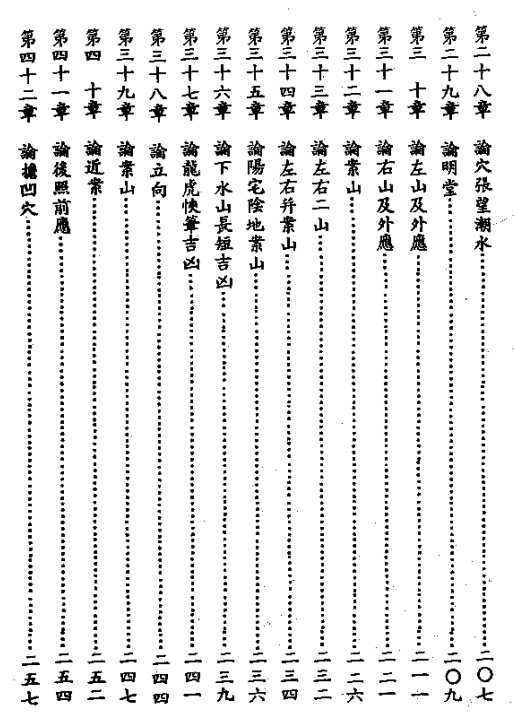 第二十八章 論穴張望潮水……二〇七
第二十九章 論明堂……二〇九
第三 十章 論左山及外應……二一一
第三十一章 論右山及外應……二二一
第三十二章 論案山……二二六
第三十三章 論左右二山……二三二
第三十四章 論左右幷案山……二三四
第三十五章 論陽宅陰地案山……二三六
第三十六章 論下水山長短吉凶……二三九
第三十七章 論龍虎快筆吉凶……二四一
第三十八章 論立向……二四四
第三十九章 論案山……二四七
第四 十章 論近案……二五二
第四十一章 論後照前應……二五四
第四十二章 論擔凹穴……二五七